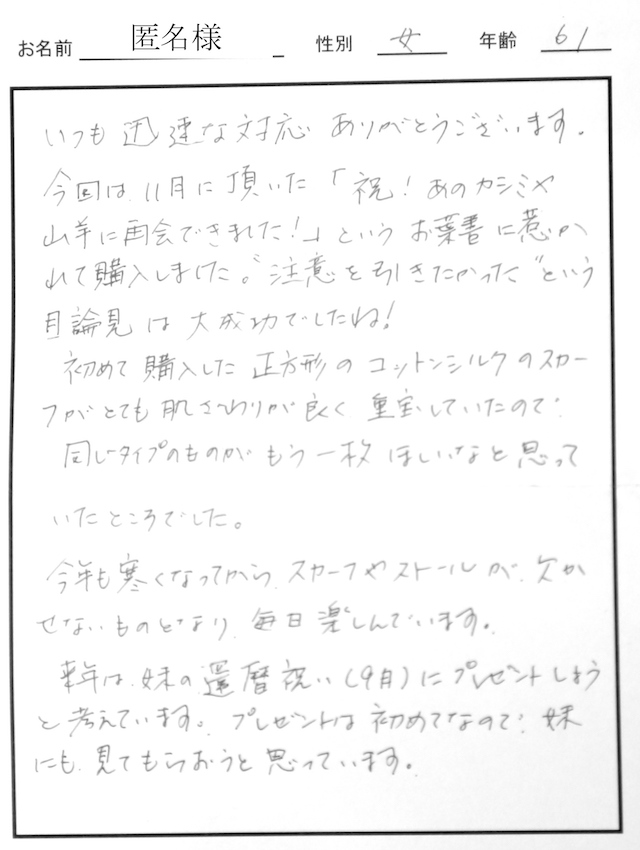 お名前 匿名様 性別 女 年齢 61
いつも迅速な対応ありがとうございます。
今回は、11月に頂いた「祝！あのカシミヤ
山羊に再会できました！」というお葉書に惹か
れて購入しました。〝注意を引きたかった〟という
目論見は大成功でしたね！
初めて購入した正方形のコットンシルクのスカー
フがとても肌ざわりが良く重宝していたので、
同じタイプのものがもう一枚ほしいなと思って
いたところでした。
今年も寒くなってから、スカーフやストールが、欠か
せないものとなり、毎日楽しんでいます。
来年は、妹の還暦祝い(9月)にプレゼントしよう
と考えています。プレゼントは初めてなので、妹
にも、見てもらおうと思っています。